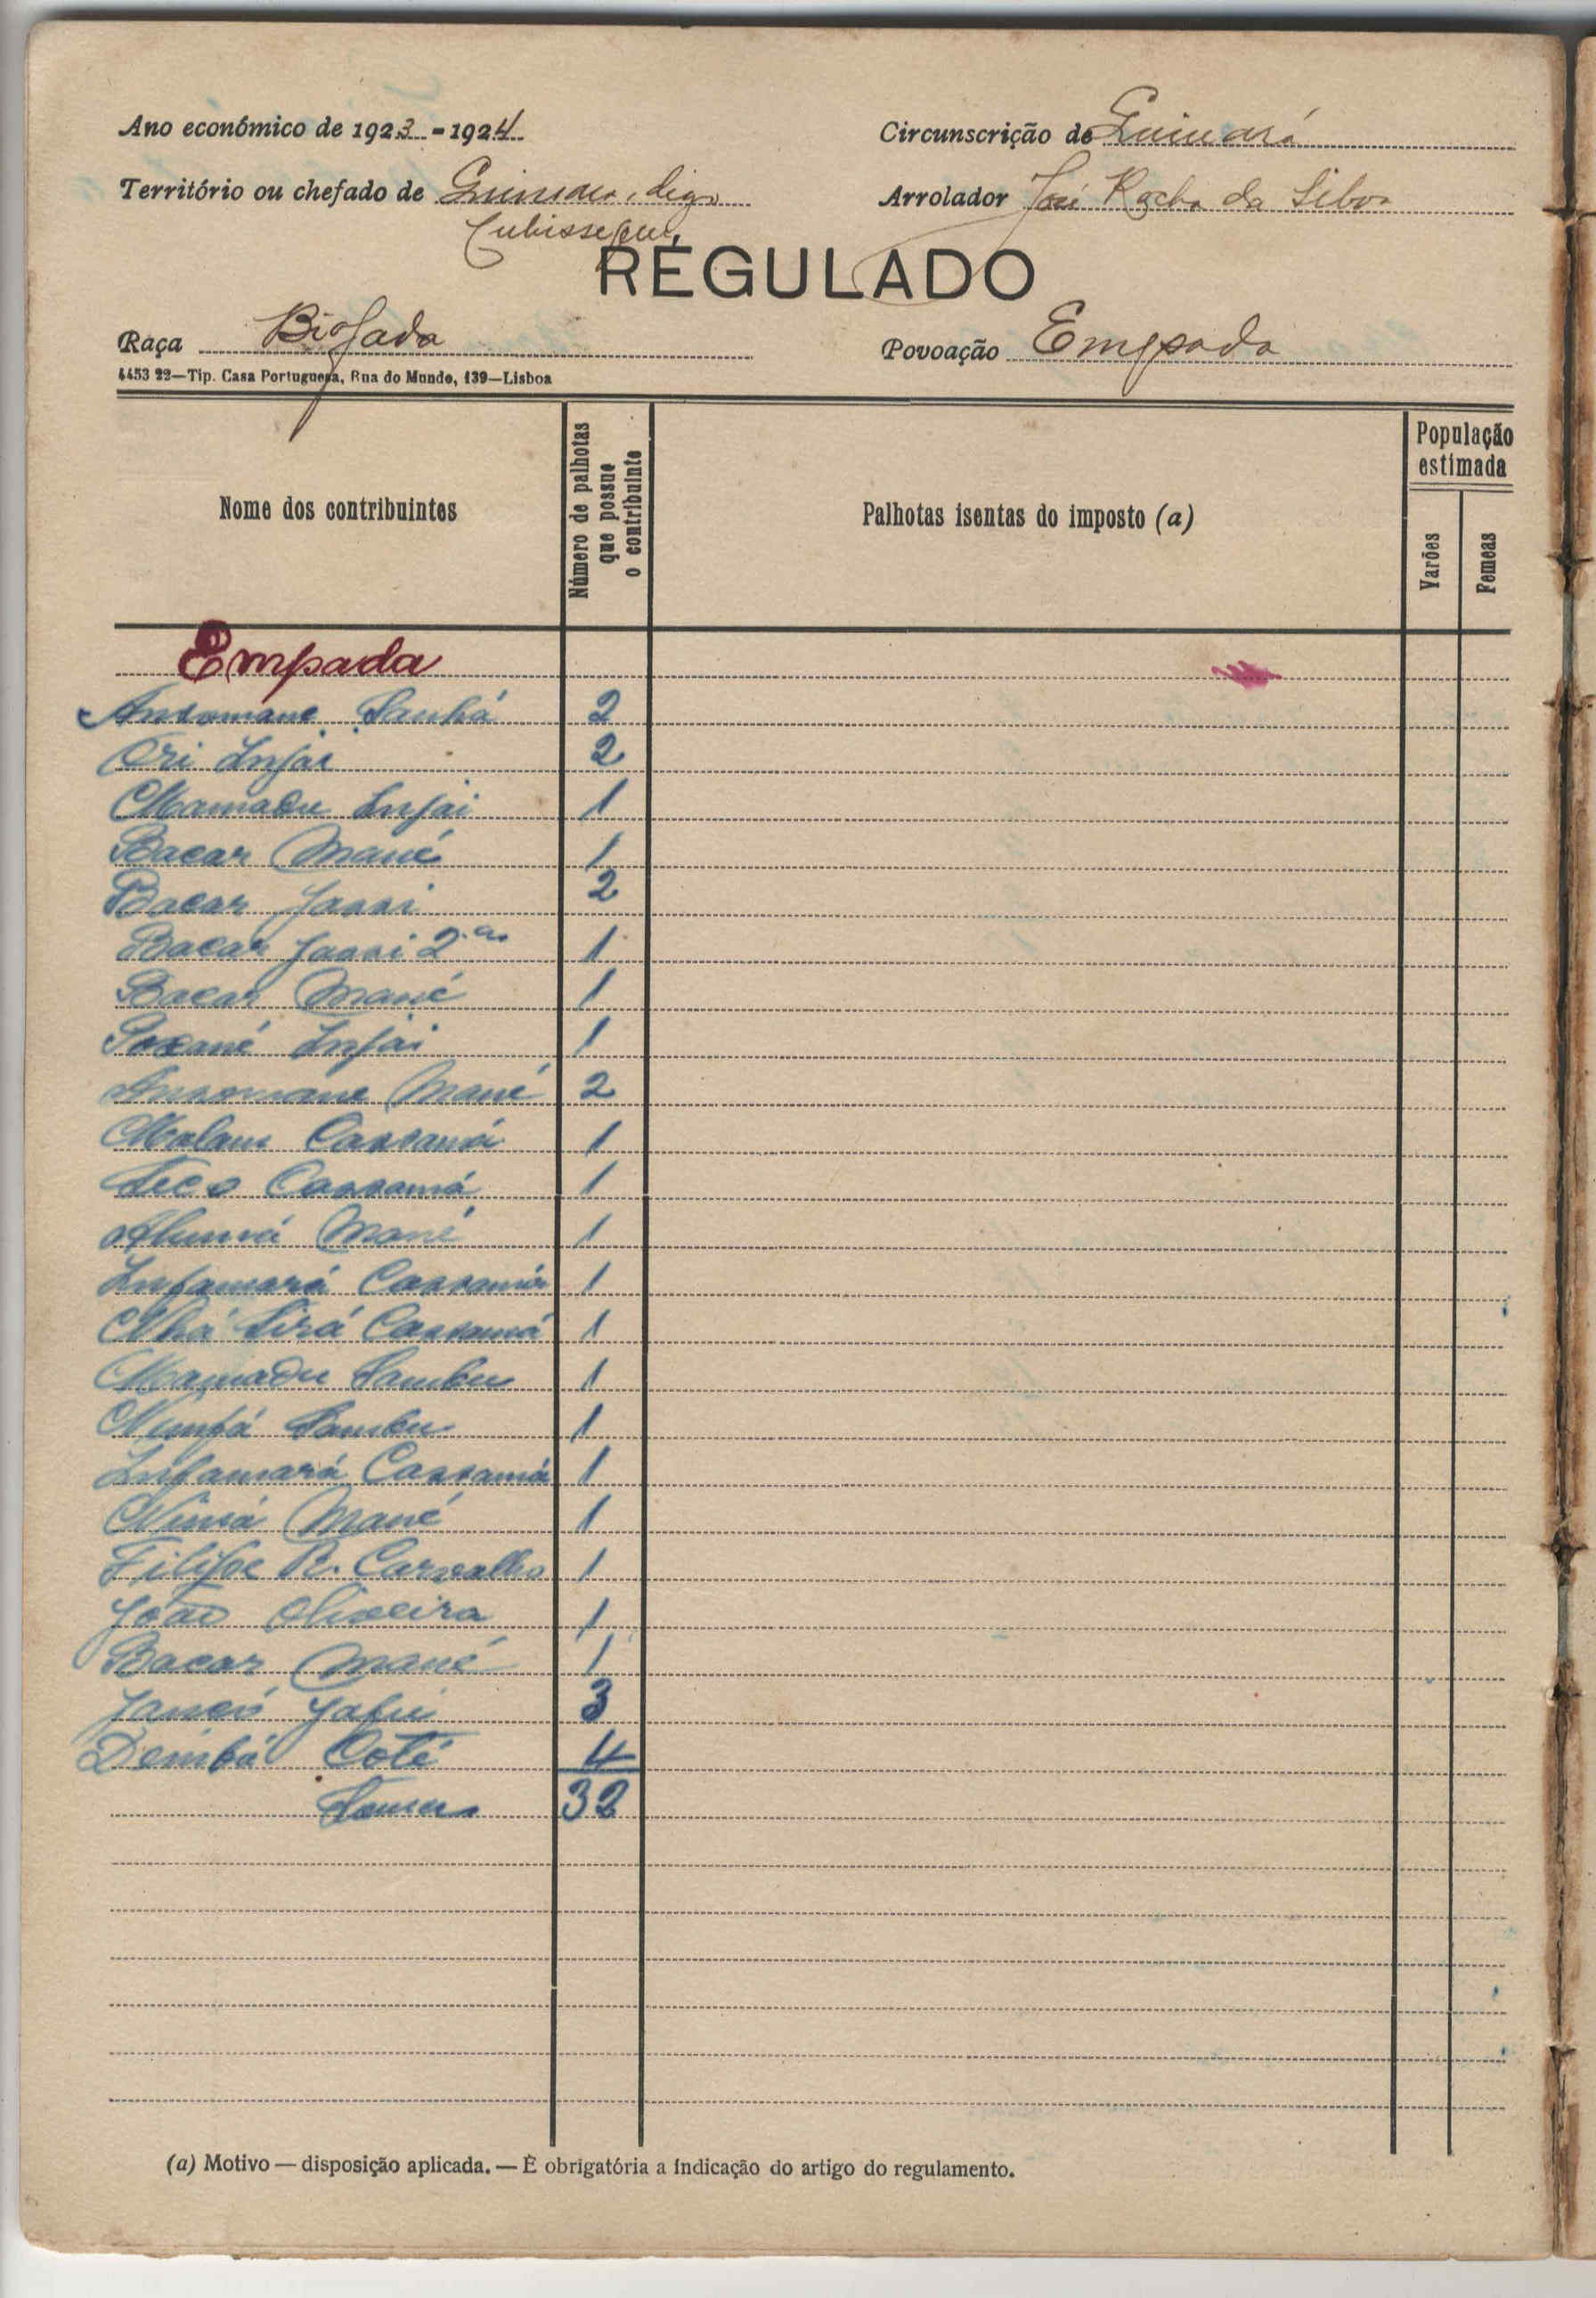 Ano económico de 1923-1924
Circunscrição de Quinará
Território ou chefado de Quinara, digo
Cubisseque,
Arrolador José Rocha da Silva
REGULADO
Raça Biafada
Povoação Empada
4453 22—Tip. Casa Portuguesa, Rua do Mundo, 139—Lisboa
Nome dos contribuintes
Número de palhotas que possue o contribuinte
Palhotas isentas do imposto (a)
População estimada
Varões
Femeas
Empada
Ansomane Sanhá 2
Ori Injai 2
Mamadu Injai 1
Bacar Mané 1
Bacar Jassi 2
Bacar Jassi 2.º 1
Bacar Mané 1
Injai 1
Ansomane Mané 2
Malam Cassamá 1
Seco Cassamá 1
Mané 1
Infamará Cassamá 1
Nhá Sirá Cassamá 1
Mamadu Sambu 1
Nunfá Sambu 1
Infamará Cassamá 1
Mané 1
Filipe R. Carvalho 1
João Oliveira 1
Bacar Mané 1
Jancó 3
Dembá Coté 4
Soma 32
(a) Motivo — disposição aplicada. — È obrigatória a indicação do artigo do regulamento.